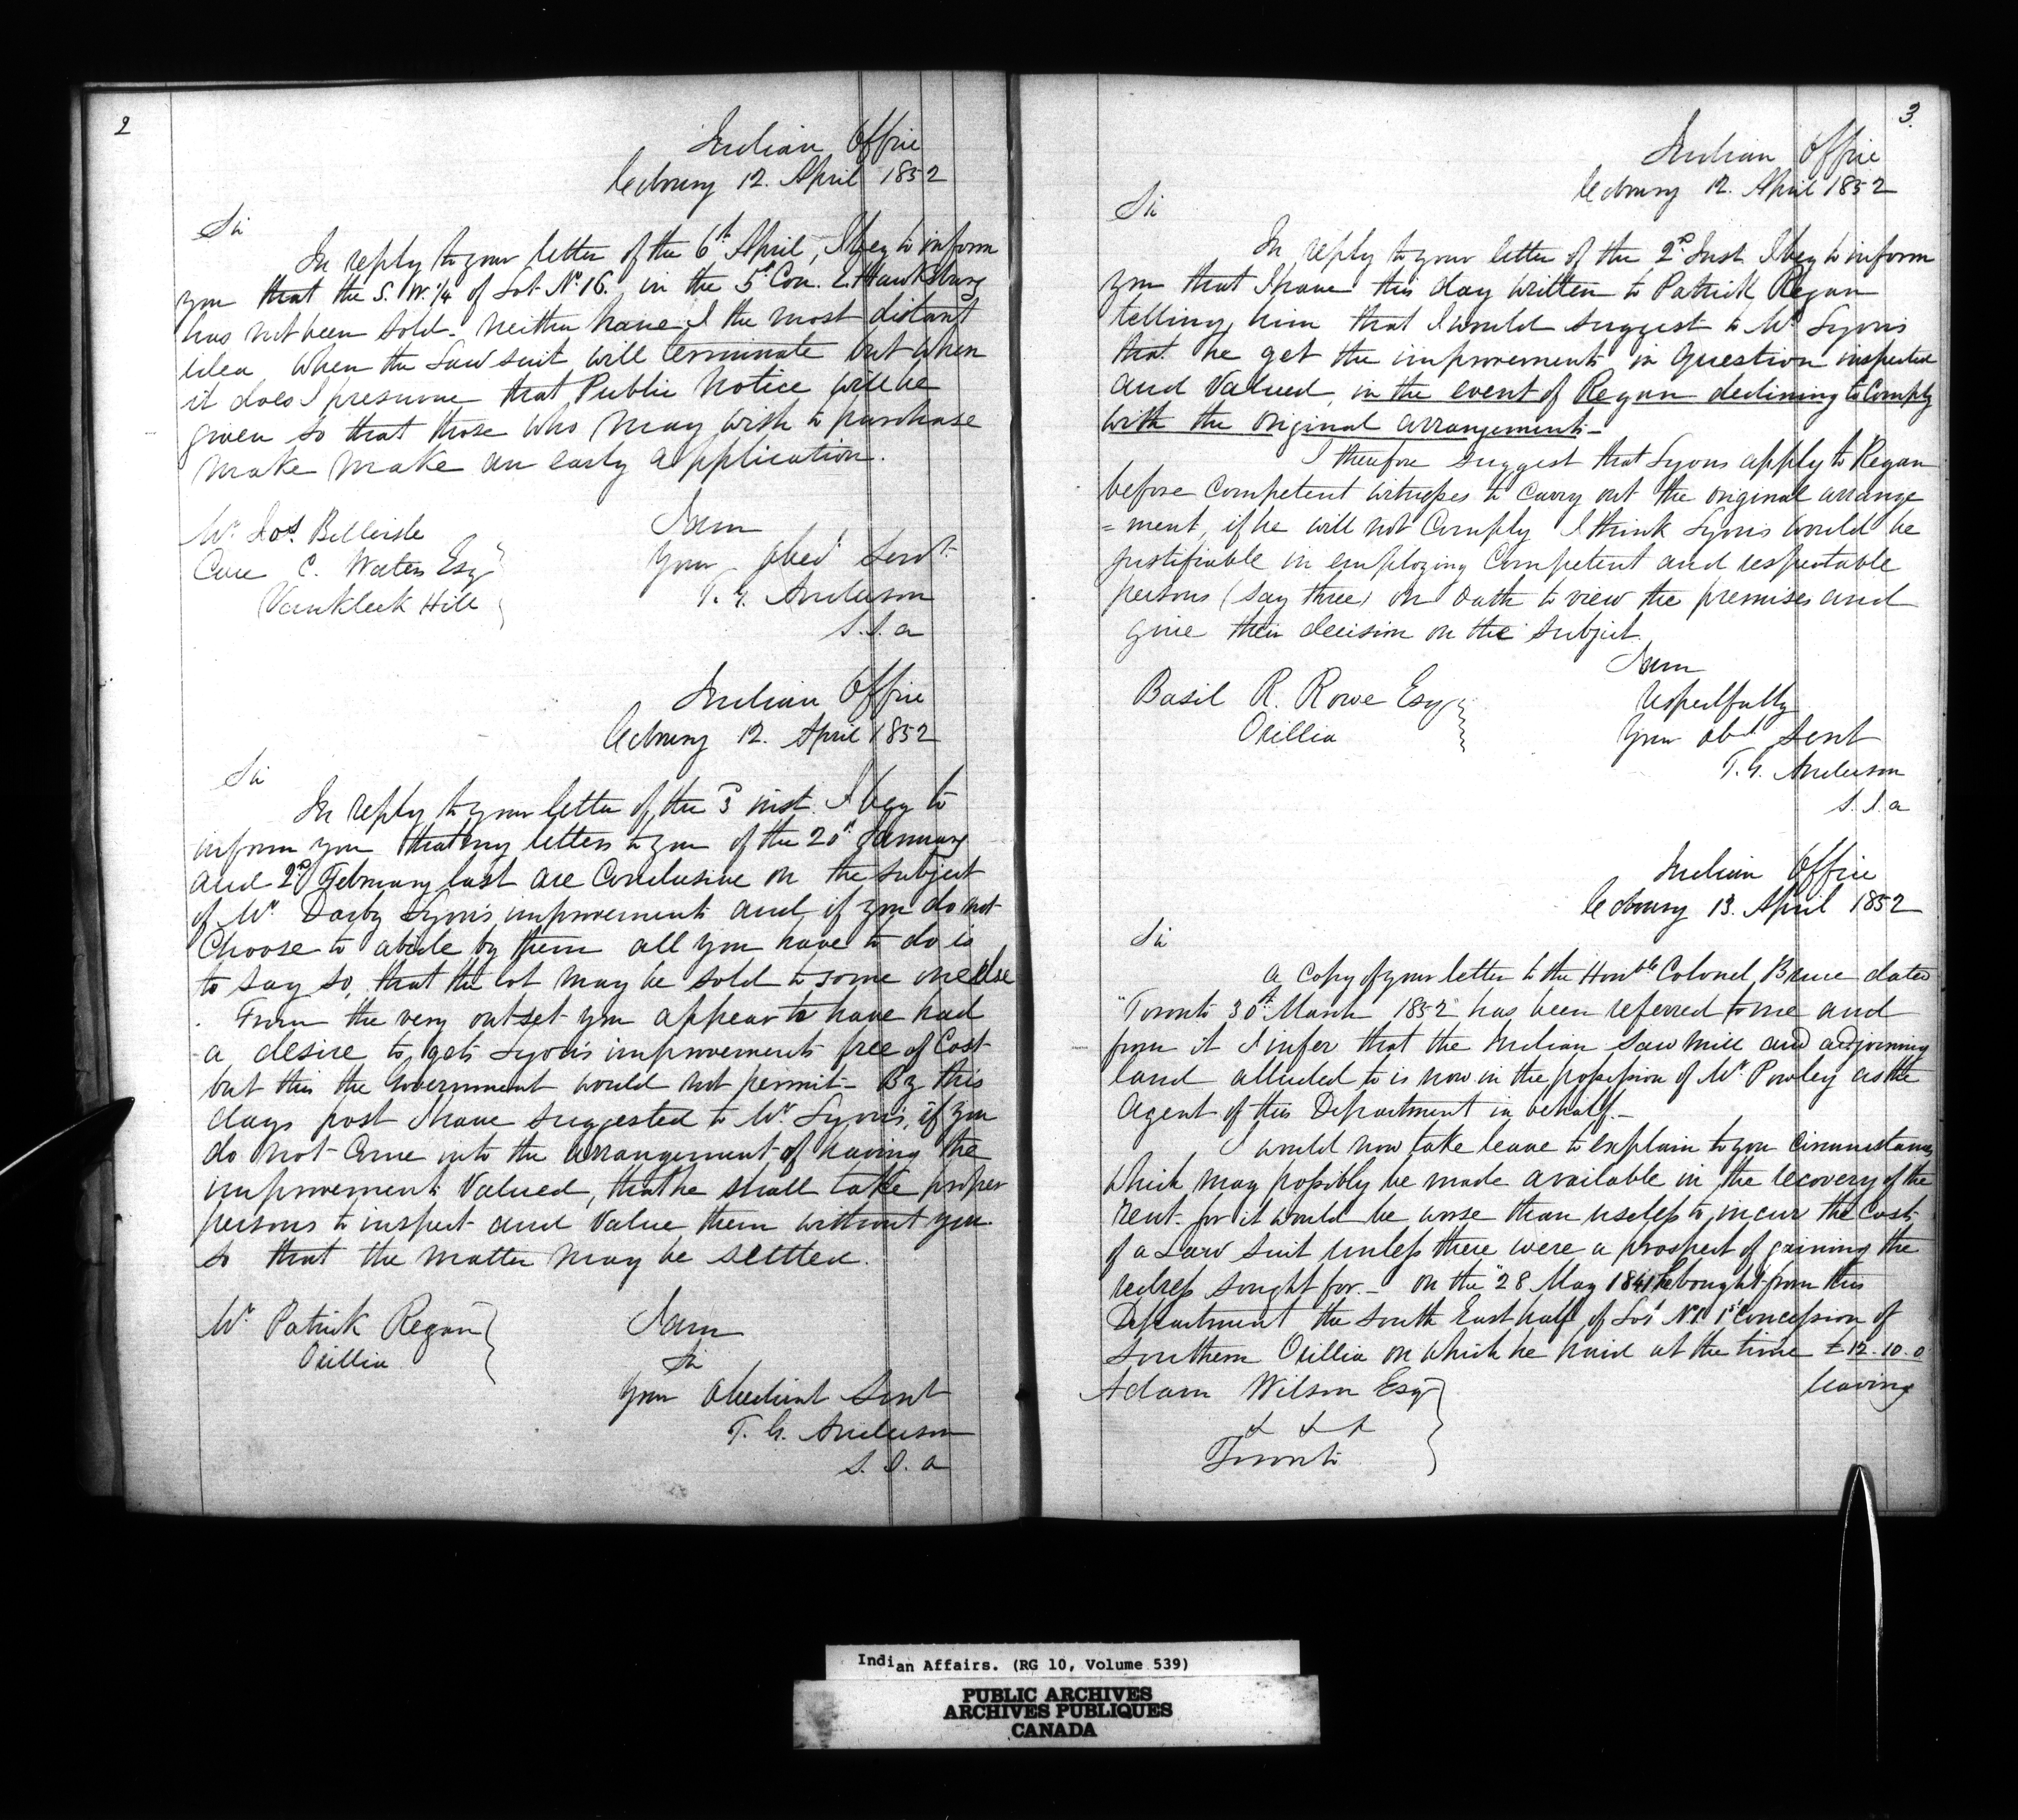 2
Indian Office
Cobourg 12. April 1852
Sir
In reply to your letter of the 6th April, I beg to inform
you that the S. W. 1/4 of Lot No 16. in the 5th Con. E. Hawksbury
has not been sold. neither have I the most distant
idea when the Law suit will terminate but when
it does I presume that Public Notice will be
given so that those who may wish to purchase
make make an early application.
I am
Your obed Servt
T. G. Anderson
S. I. a
Mr Jos. Bellisle
Care C. Waters Esq
Vankleek Hill
Indian Office
Cobourg 12. April 1852
Sir
In reply to your letter of the 3d inst. I beg to
inform you that my letters to you of the 20th January
and 2nd February last are Conclusive on the subject
of Mr Darby Lyons improvements and if you do not
Choose to abide by them all you have to do is
to say so, that the lot may be sold to some one else
From the very outset you appear to have had
a desire to get Lyons improvements free of Cost
but this the Government would not permit - By this
days post I have suggested to Mr Lyons, if you
do not Come into the arrangement of having the
improvements Valued, that he shall take proper
persons to inspect and Value them without you
so that the matter may be settled.
Mr Patrick Regan
Orillia
I am
Sir
Your obedient Servt
T. G. Anderson
S. I. a
3.
Indian Office
Cobourg 12. April 1852
Sir
In reply to your letter of the 2nd Inst I beg to inform
you that I have this day written to Patrick Regan
telling him that I would suggest to Mr Lyons
that he get the improvements in question inspected
and Valued, in the event of Regan declining to Comply
with the original arrangements -
I therefore suggest that Lyons apply to Regan
before Competent witnesses to Carry out the original arrange
=ment, if he will not Comply I think Lyons would be
justifiable in employing Competent and respectable
persons (say three) on Oath to view the premises and
give their decision on the subject.
I am
respectfully
Your obt Servt
T. G. Anderson
S. I. a
Basil R. Rowe Esq
Orillia
Indian Office
Cobourg 13. April 1852
Sir
a copy of your letter to the Honble Colonel Bruce dated
"Toronto 30th March 1852" has been referred to me and
from it I infer that the Indian Saw Mill and adjoining
land alluded to is now in the possession of Mr Powley as the
Agent of this Department in behalf. -
I would now take leave to explain to you Circumstances
which may possibly be made available in the recovery of the
rent. for it would be worse than useless to incur the Costs
of a Law Suit unless there were a prospect of gaining the
redress sought for. - on the "28 May 1841 he bought from this
Department the South East half of Lot No 1 1st Concession of
Southern Orillia on which he paid at the time £12-10-0
leaving
Adam Wilson Esq
& & &
Toronto
Indian Affairs. (RG 10, Volume 539)
PUBLIC ARCHIVES
ARCHIVES PUBLIQUES
CANADA